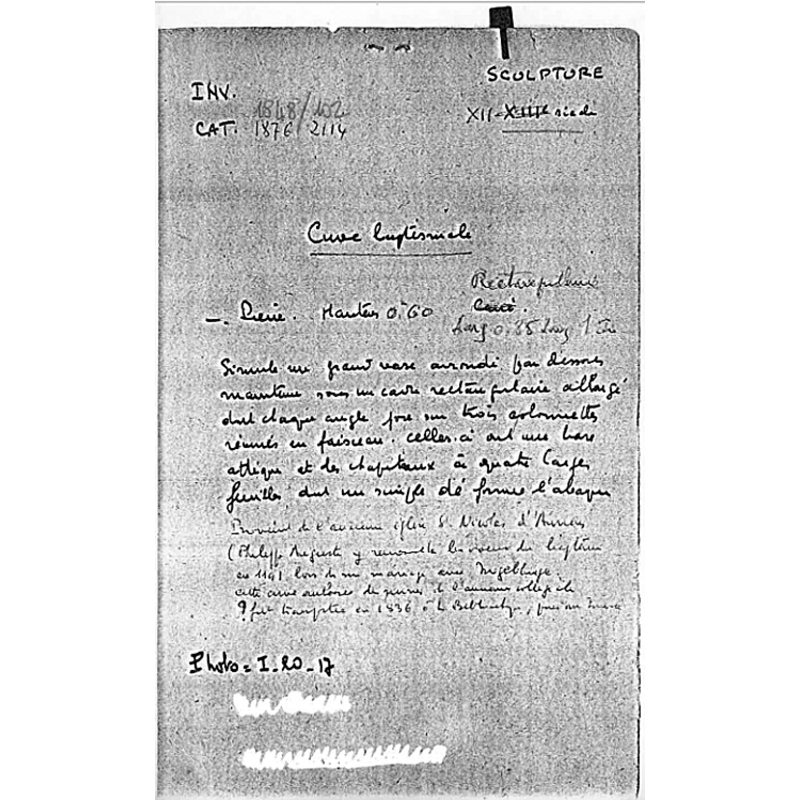 SCULPTURE
INV. 1848/102
XII-XIIIe siècle
CAT. 1876/2114
Cuve baptismale
Rectangulaire
—. Pierre. Hauteur 0m60 Carré.
Larg 0.85 Long 1
Simule un grand vase arrondi par dessous
maintenu sous un cadre rectangulaire allongé
dont chaque angle pose sur trois colonnettes
réunies en faisceau. celles-ci ont une base
attique et des chapiteaux à quatre larges
feuilles dont un simple dé forme l'abaque
Provient de l'ancienne église St Nicolas d'Amiens
(Philippe Auguste y renouvela les voeux du baptême
en 1191 lors de son mariage avec Ingelburge
cette cuve de l'ancienne collégiale
? fut transportée en 1836 à la Bibliothèque, puis au Musée
Photo = I-20-17